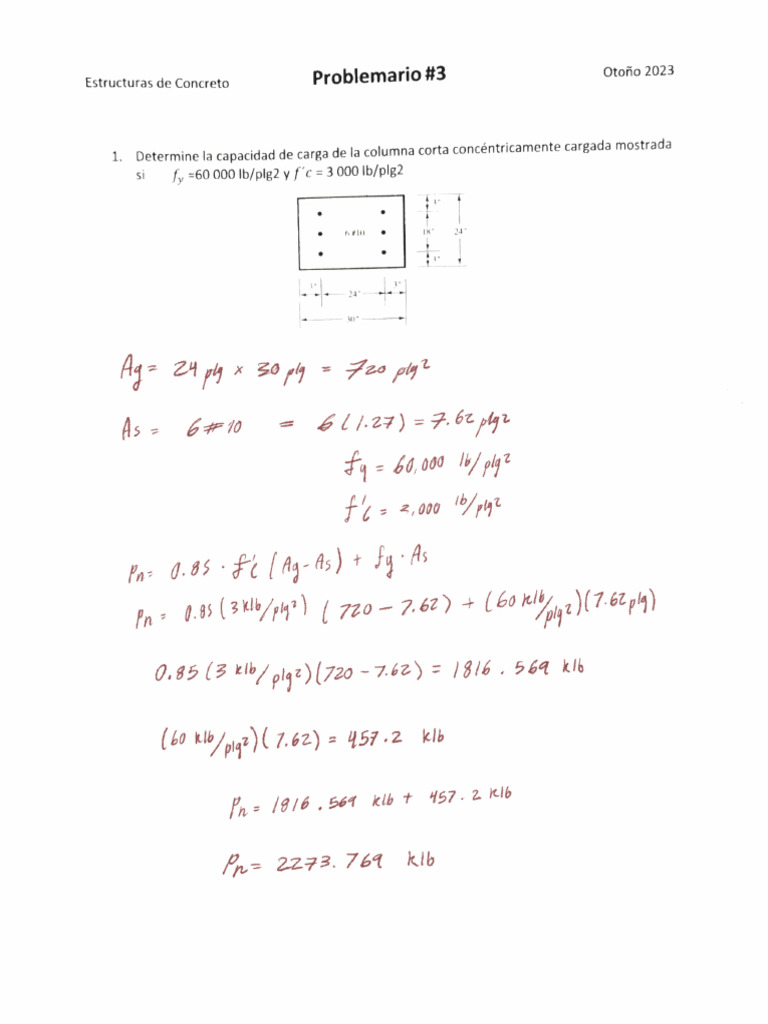 Estructuras de Concreto
Problemario #3
Otoño 2023
1. Determine la capacidad de carga de la columna corta concéntricamente cargada mostrada
si fy =60 000 lb/plg2 y f´c = 3 000 lb/plg2
6 #10
3"
18"
24"
3"
3"
24"
3"
30"
Ag = 24 plg x 30 plg = 720 plg²
As = 6#10 = 6(1.27) = 7.62 plg²
fy = 60,000 lb/plg²
f'c = 2,000 lb/plg²
Pn= 0.85 · f'c (Ag-As) + fy · As
Pn= 0.85 (3 klb/plg²) (720 - 7.62) + (60 klb/plg²)(7.62 plg)
0.85 (3 klb/plg²)(720 - 7.62) = 1816.569 klb
(60 klb/plg²)(7.62) = 457.2 klb
Pn = 1816.569 klb + 457.2 klb
Pn = 2273.769 klb